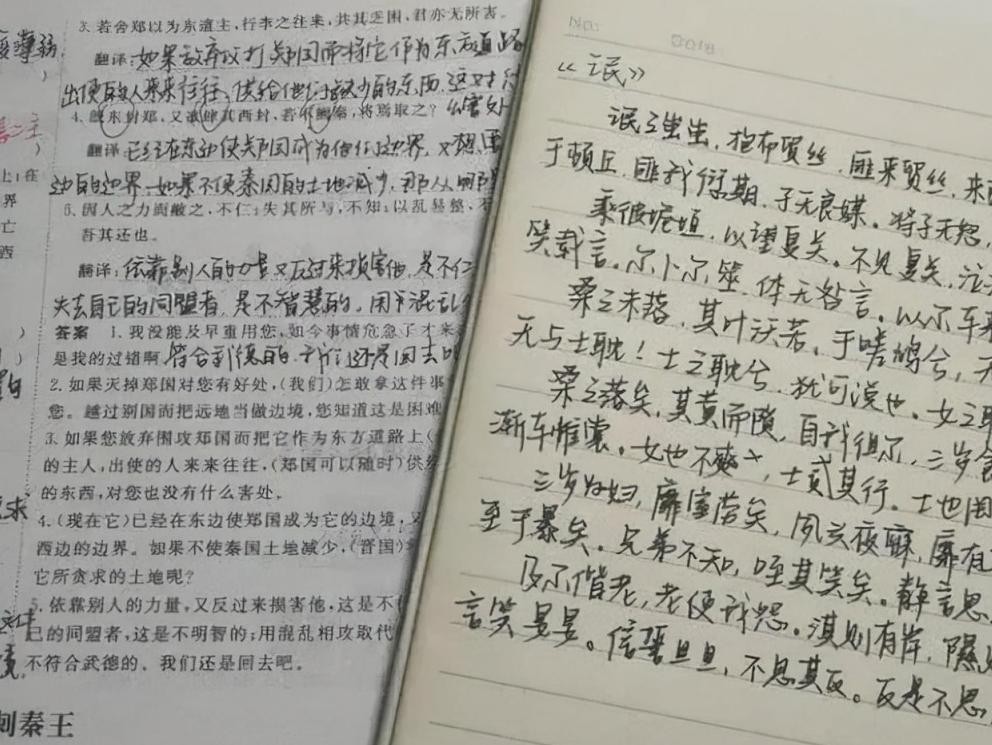 3. 若舍郑以为东道主,行李之往来,共其乏困,君亦无所害。
翻译:如果放弃攻打郑国而将它作为东方道路
出使的人来来往往,供给他们缺少的东西,这对
么害处
4. 既东封郑,又欲肆其西封,若不阙秦,将焉取之?
翻译:已经在东边使郑国成为他的边界,又想
边的边界,如果不使秦国的土地减少,那从哪里
5. 因人之力而敝之,不仁;失其所与,不知;以乱易整,不
吾其还也。
翻译:依靠别人的力量又反过来损害他,是不仁
失去自己的同盟者,是不智慧的,用
答案 1. 我没能及早重用您,如今事情危急了才来
是我的过错啊 符合武德的,我们还是回去吧
2. 如果灭掉郑国对您有好处,(我们)怎敢拿这件事
您。越过别国而把远地当做边境,您知道这是困难
3. 如果您放弃围攻郑国而把它作为东方道路上(
的主人,出使的人来来往往,(郑国可以随时)供给
的东西,对您也没有什么害处。
4. (现在它)已经在东边使郑国成为它的边境,又
西边的边界。如果不使秦国土地减少,(晋国)
它所贪求的土地呢?
5. 依靠别人的力量,又反过来损害他,这是不仁
己的同盟者,这是不明智的;用混乱相攻取代
不符合武德的。我们还是回去吧。
刺秦王
上;在
界
亡
西
求
境,
No.
《氓》
氓之蚩蚩,抱布贸丝,匪来贸丝,来
于顿丘,匪我愆期,子无良媒。将子无怒,
乘彼垝垣,以望复关。不见复关,泣
笑载言。尔卜尔筮,体无咎言。以尔车来
桑之未落,其叶沃若。于嗟鸠兮,无
无与士耽!士之耽兮,犹可说也。女之耽
桑之落矣,其黄而陨,自我徂尔,三岁食
渐车帷裳。女也不爽,士贰其行。士也罔
三岁为妇,靡室劳矣,夙兴夜寐,靡有
至于暴矣。兄弟不知,咥其笑矣。静言思
及尔偕老,老使我怨。淇则有岸,隰
言笑晏晏。信誓旦旦,不思其反。反是不思,